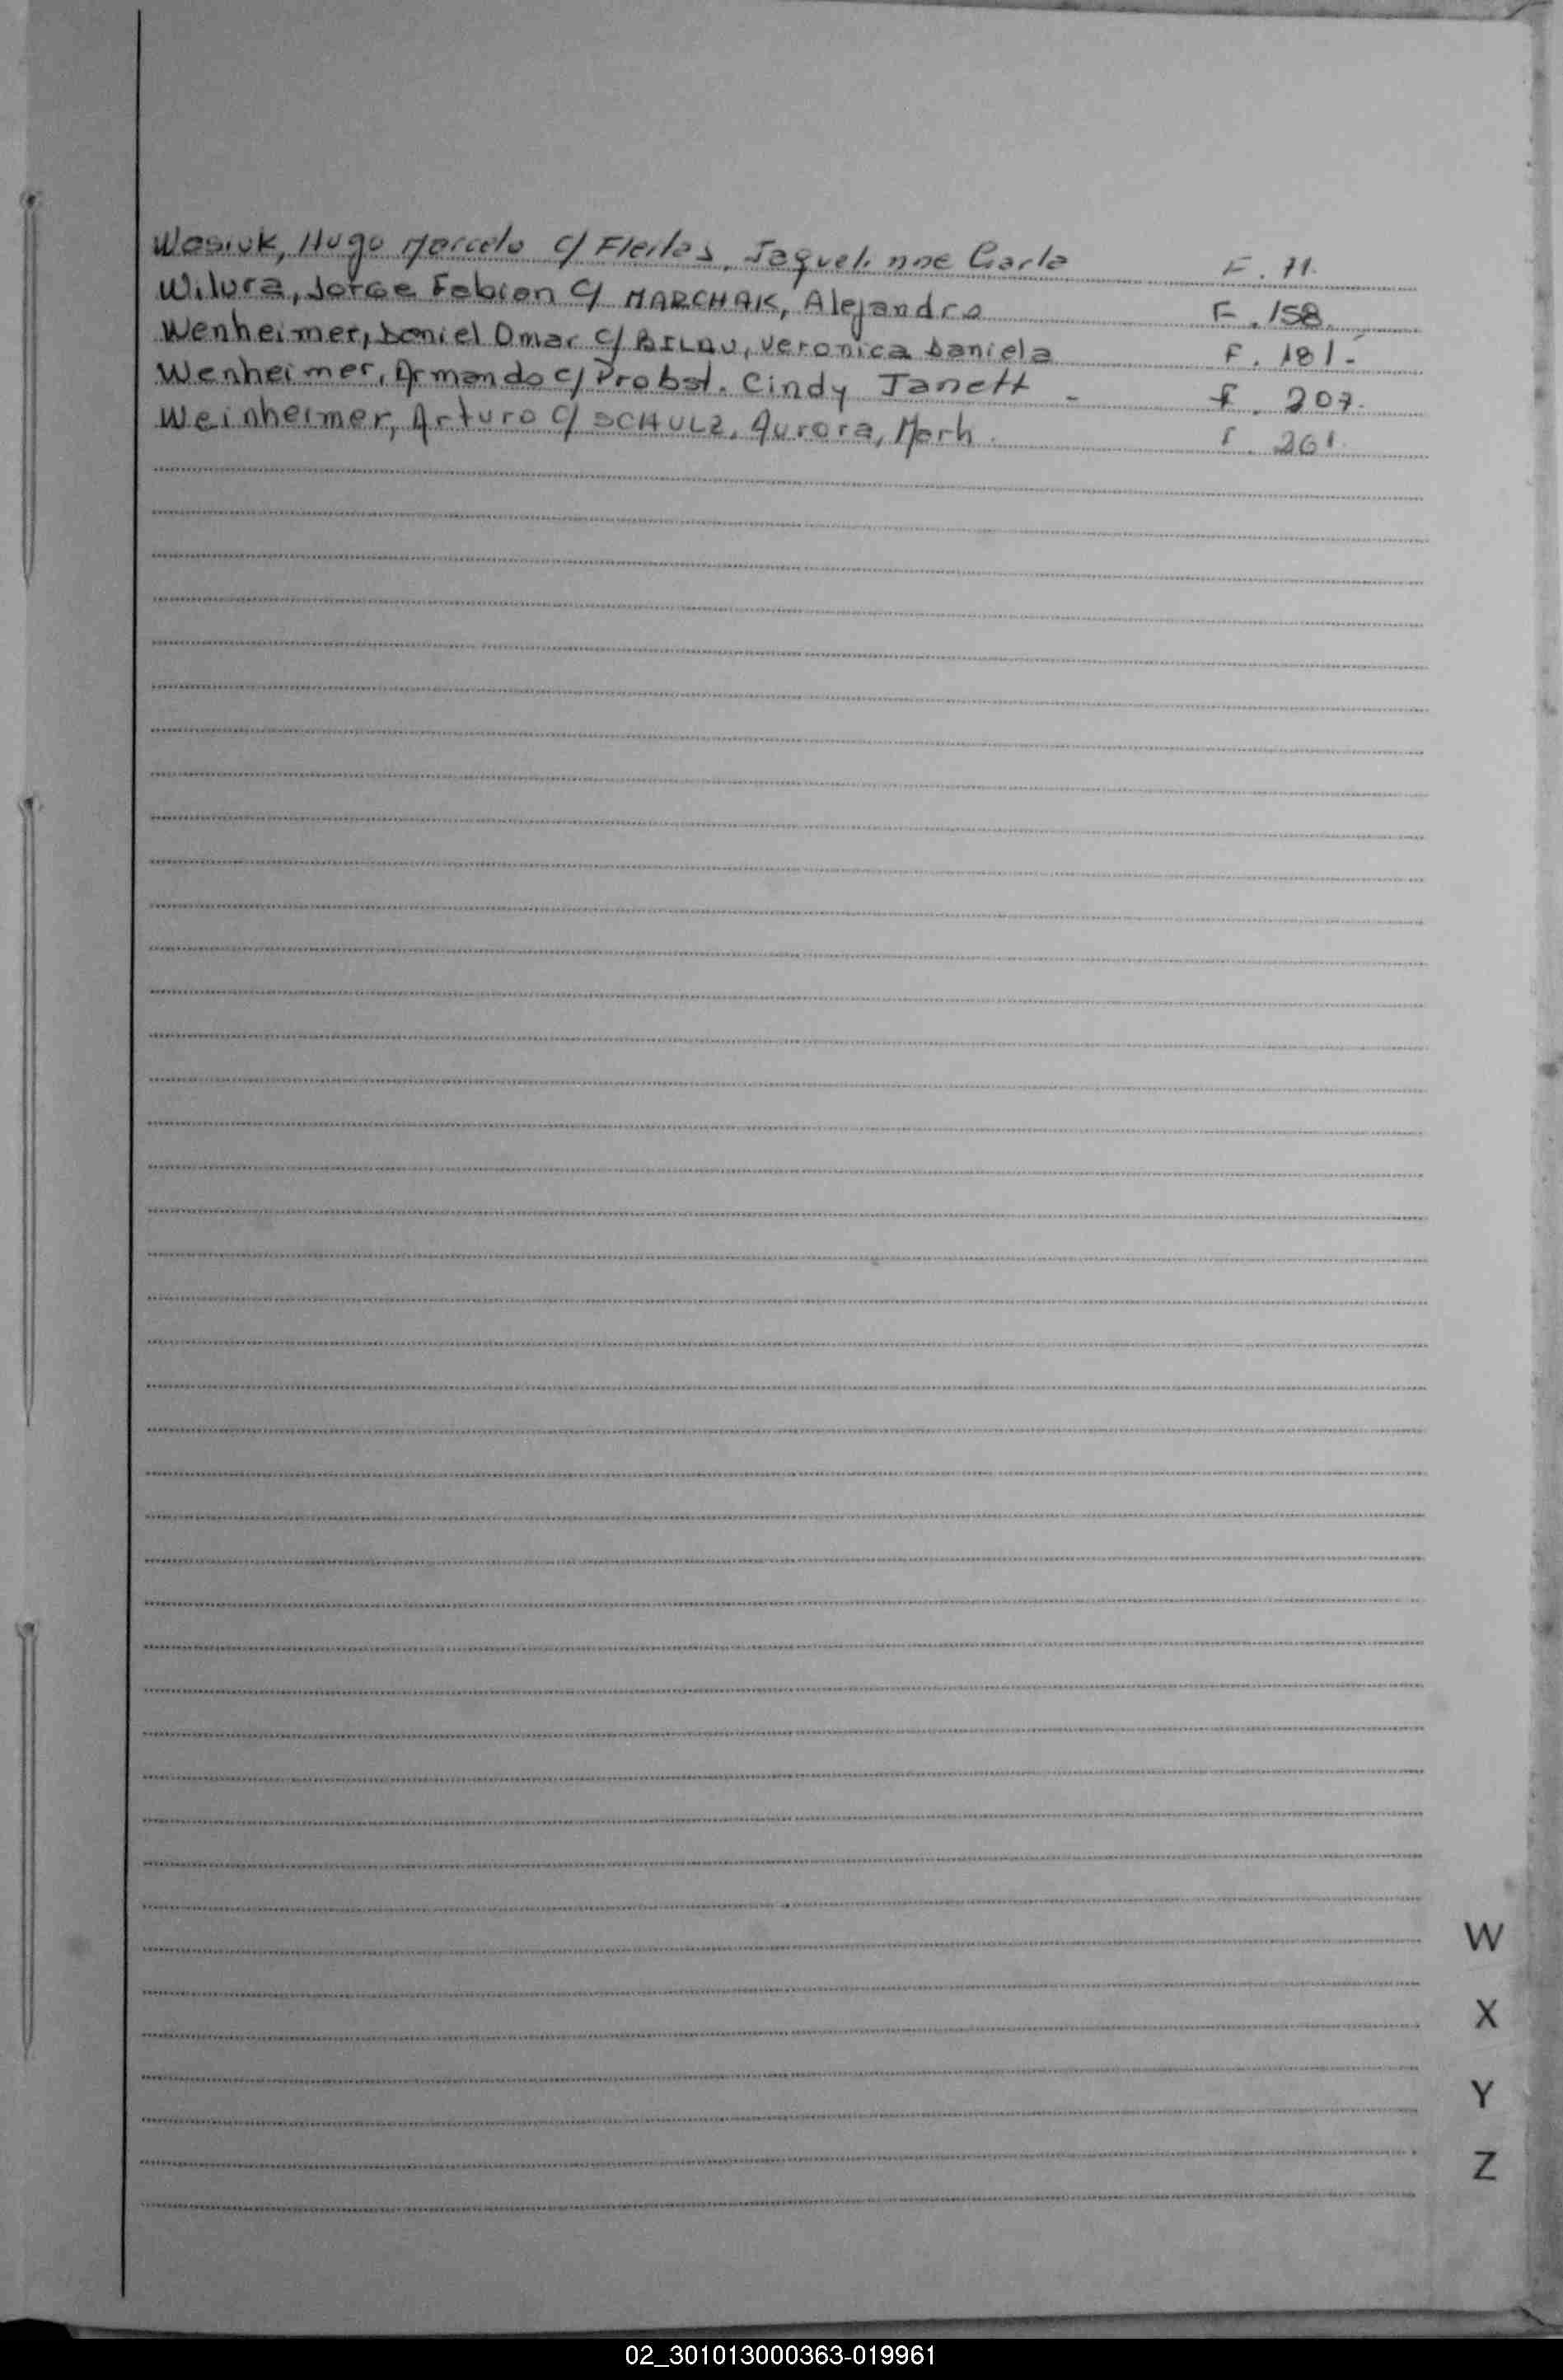 Wasiuk, Hugo Marcelo c/ Fleitas, Jaquelinne Carla F. 71.
Wilura, Jorge Fabian c/ MARCHAK, Alejandra F. 158.
Wenheimer, Daniel Omar c/ Veronica Daniela F. 181.-
Wenheimer, Armando c/ Probst. Cindy Janett - F. 207.
Weinheimer, Arturo c/ SCHULZ, Aurora, F. 261.
W
X
Y
Z
02_301013000363-019961